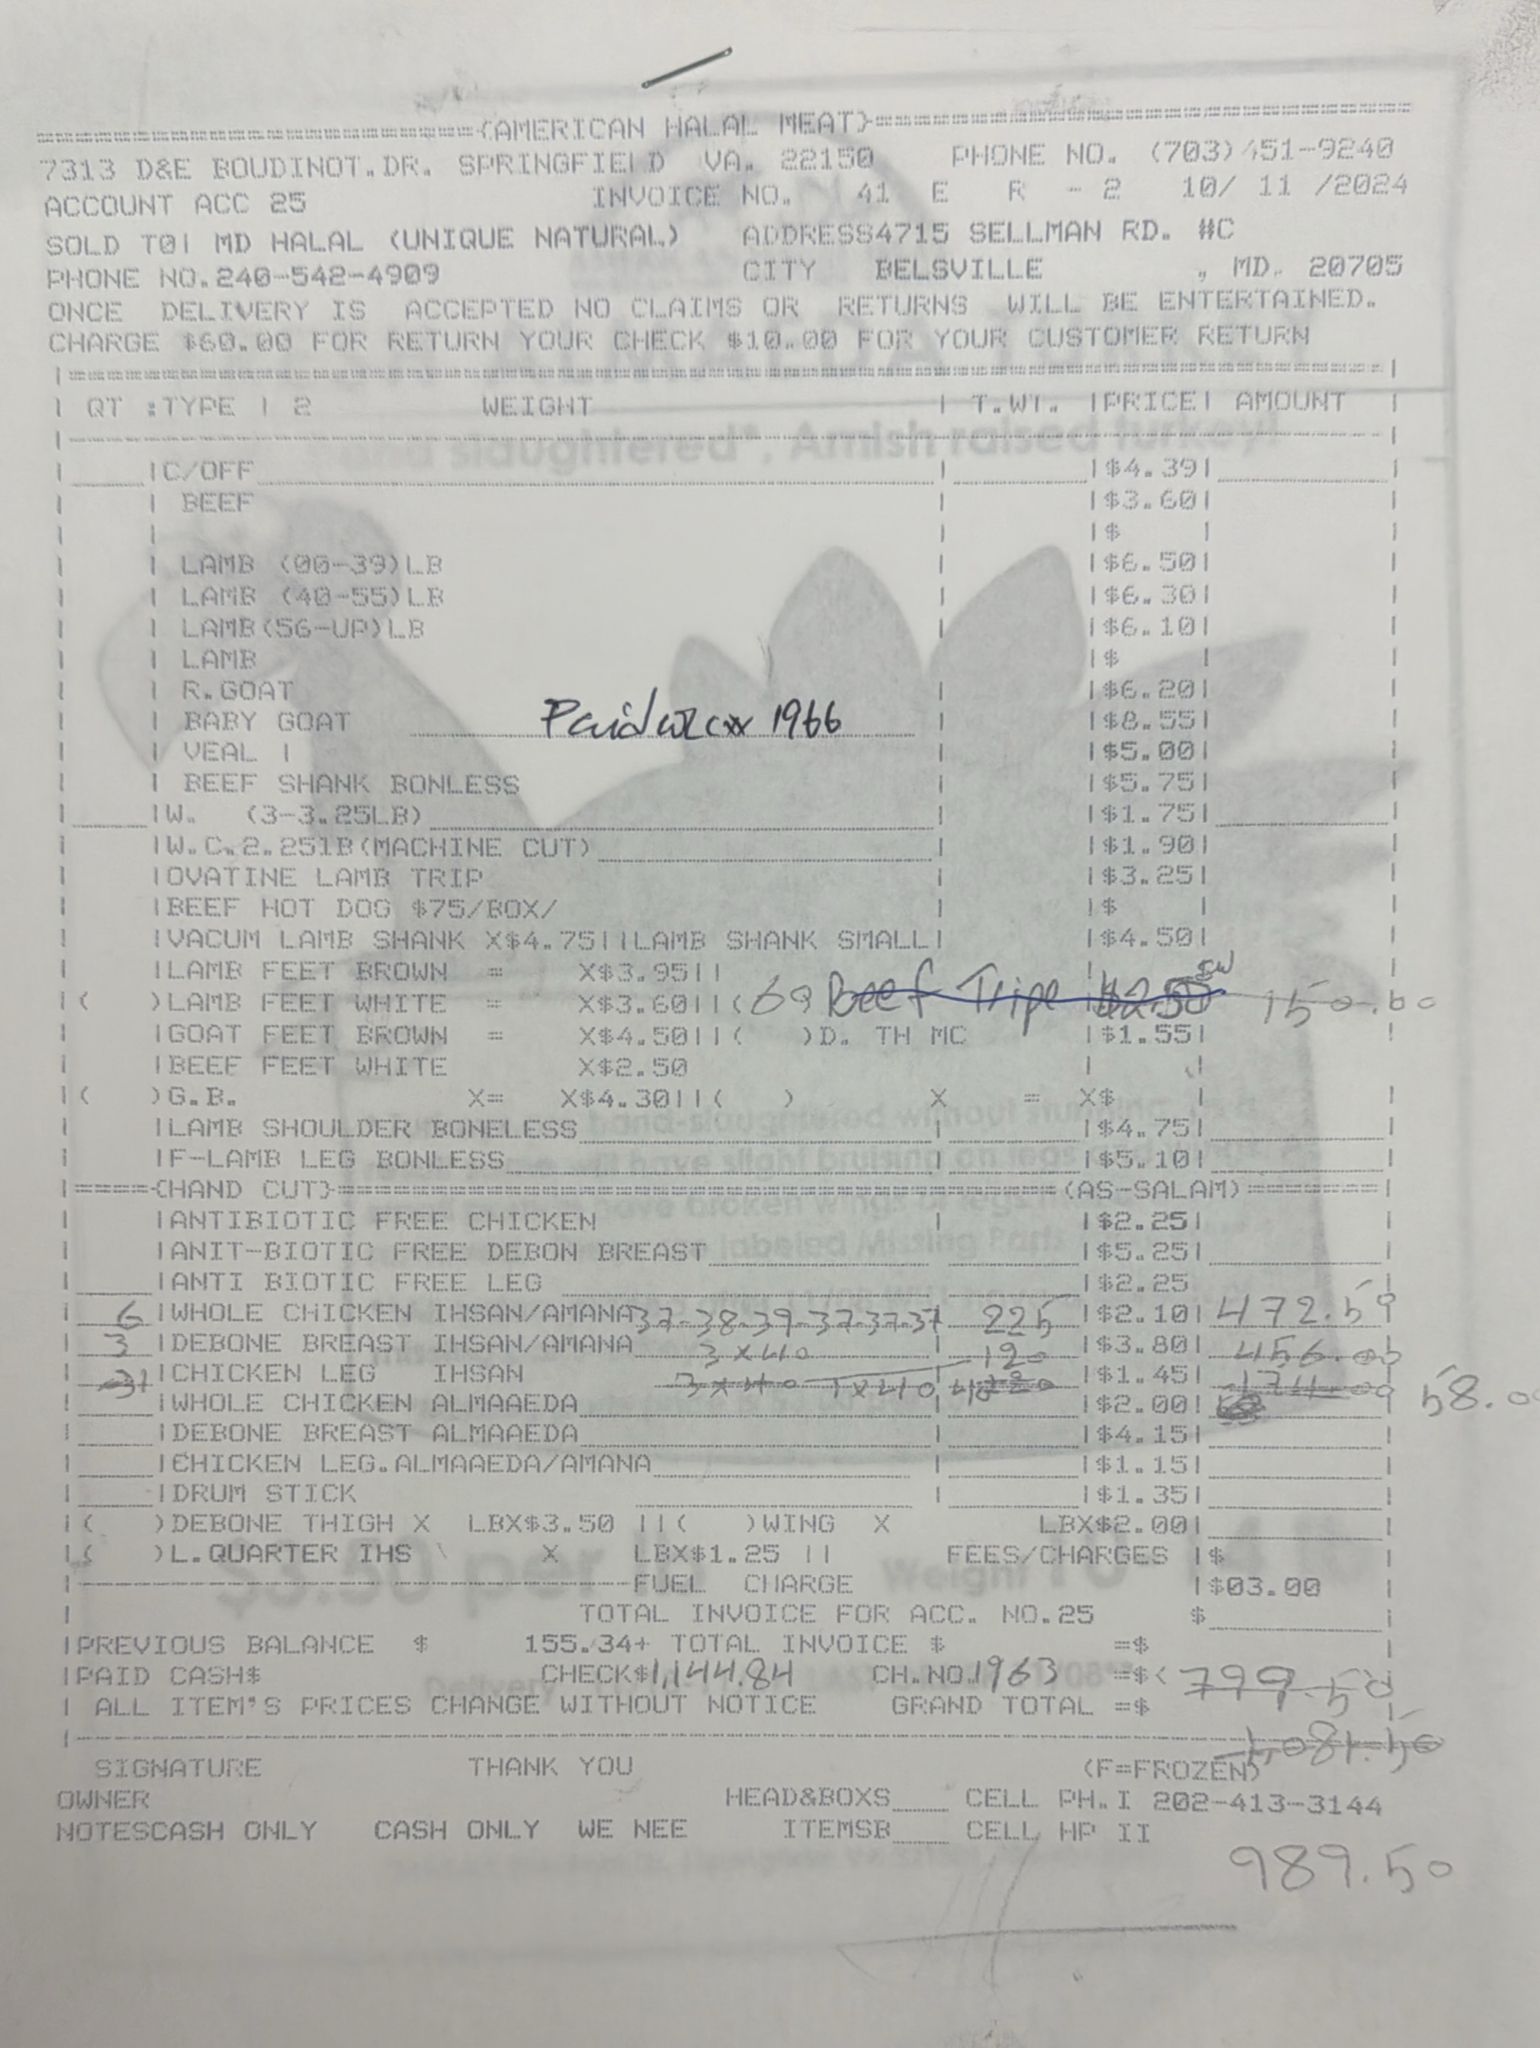 {AMERICAN HALAL MEAT}
7313 D&E BOUDINOT.DR. SPRINGFIELD VA. 22150 PHONE NO. (703)451-9240
ACCOUNT ACC 25 INVOICE NO. 41 E R - 2 10/ 11 /2024
SOLD TO| MD HALAL (UNIQUE NATURAL) ADDRESS4715 SELLMAN RD. #C
PHONE NO.240-542-4909 CITY BELSVILLE , MD. 20705
ONCE DELIVERY IS ACCEPTED NO CLAIMS OR RETURNS WILL BE ENTERTAINED.
CHARGE $60.00 FOR RETURN YOUR CHECK $10.00 FOR YOUR CUSTOMER RETURN
| QT :TYPE | 2 WEIGHT | T.WT. |PRICE| AMOUNT |
and slaughtered*, Amish raised turkey!
|C/OFF |$4.39|
| BEEF |$3.60|
| |$ |
| LAMB (00-39)LB |$6.50|
| LAMB (40-55)LB |$6.30|
| LAMB(56-UP)LB |$6.10|
| LAMB |$ |
| R.GOAT |$6.20|
| BABY GOAT Paid 1966 |$8.55|
| VEAL | |$5.00|
| BEEF SHANK BONLESS |$5.75|
|W. (3-3.25LB) |$1.75|
|W.C.2.25lB(MACHINE CUT) |$1.90|
|OVATINE LAMB TRIP |$3.25|
|BEEF HOT DOG $75/BOX/ |$ |
|VACUM LAMB SHANK X$4.75||LAMB SHANK SMALL| |$4.50|
|LAMB FEET BROWN = X$3.95||
|( )LAMB FEET WHITE = X$3.60||(60) Beef Tripe $2.50 150.00
|GOAT FEET BROWN = X$4.50||( )D. TH MC |$1.55|
|BEEF FEET WHITE X$2.50
|( )G.B. X= X$4.30||( ) X = X$ |
|LAMB SHOULDER BONELESS |$4.75|
|F-LAMB LEG BONLESS |$5.10|
|=====(HAND CUT)=====(AS-SALAM)=======|
|ANTIBIOTIC FREE CHICKEN |$2.25|
|ANIT-BIOTIC FREE DEBON BREAST |$5.25|
|ANTI BIOTIC FREE LEG |$2.25
| 6 |WHOLE CHICKEN IHSAN/AMANA 37-38-39-37-37-37 225 |$2.10| 472.50
| 3 |DEBONE BREAST IHSAN/AMANA 3x40 120 |$3.80| 456.00
|CHICKEN LEG IHSAN 3x40 1x40 |$1.45| 174.00 58.00
|WHOLE CHICKEN ALMAAEDA |$2.00|
|DEBONE BREAST ALMAAEDA |$4.15|
|CHICKEN LEG.ALMAAEDA/AMANA |$1.15|
|DRUM STICK |$1.35|
|( )DEBONE THIGH X LBX$3.50 ||( )WING X LBX$2.00|
|( )L.QUARTER IHS X LBX$1.25 || FEES/CHARGES |$
FUEL CHARGE |$03.00
TOTAL INVOICE FOR ACC. NO.25 $
|PREVIOUS BALANCE $ 155.34+ TOTAL INVOICE $ =$
|PAID CASH$ CHECK$1,144.84 CH.NO.1963 =$( 799.50
| ALL ITEM'S PRICES CHANGE WITHOUT NOTICE GRAND TOTAL =$
1,081.50
SIGNATURE THANK YOU (F=FROZEN)
OWNER HEAD&BOXS CELL PH.I 202-413-3144
NOTESCASH ONLY CASH ONLY WE NEE ITEMSB CELL HP II
989.50